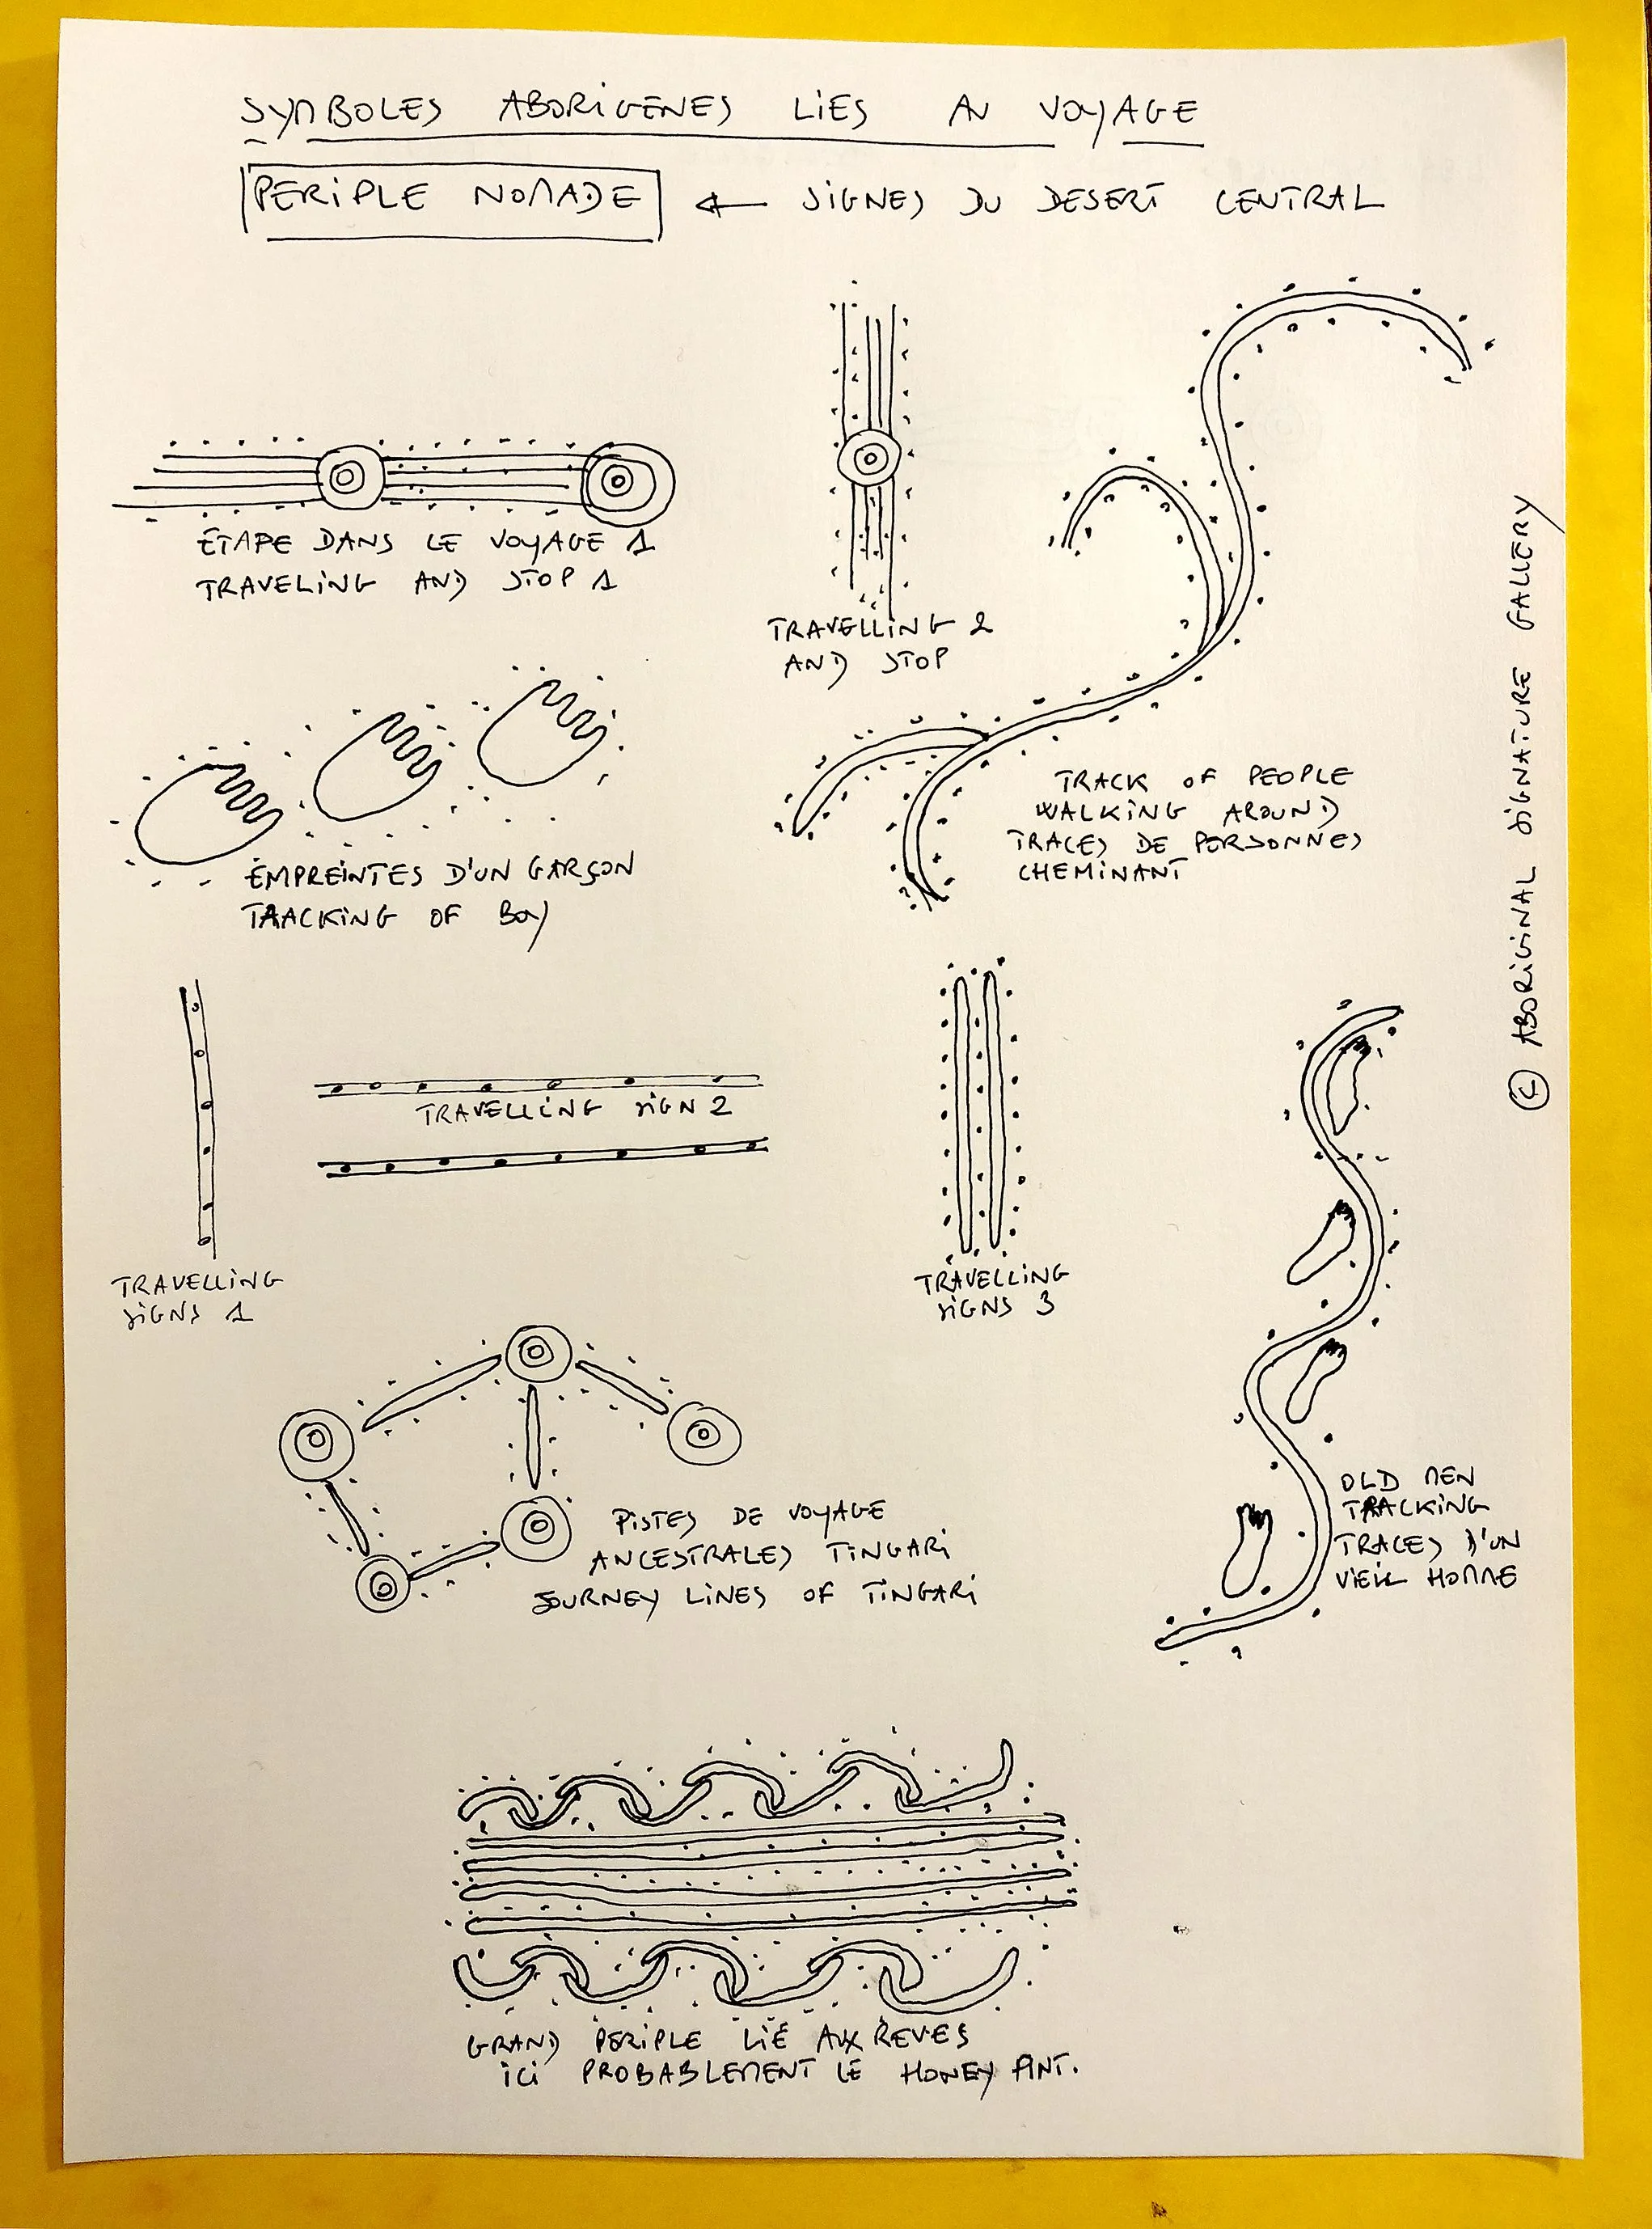 SYMBOLES ABORIGENES LIES AU VOYAGE
PERIPLE NOMADE ← SIGNES DU DESERT CENTRAL
ETAPE DANS LE VOYAGE 1
TRAVELING AND STOP 1
TRAVELLING 2
AND STOP
TRACK OF PEOPLE
WALKING AROUND
TRACES DE PERSONNES
CHEMINANT
EMPREINTES D'UN GARÇON
TRACKING OF BOY
© ABORIGINAL SIGNATURE GALLERY
TRAVELLING
SIGNS 1
TRAVELLING SIGN 2
TRAVELLING
SIGNS 3
OLD MEN
TRACKING
TRACES D'UN
VIEIL HOMME
PISTES DE VOYAGE
ANCESTRALES TINGARI
JOURNEY LINES OF TINGARI
GRAND PERIPLE LIÉ AUX REVES
ICI PROBABLEMENT LE HONEY ANT.